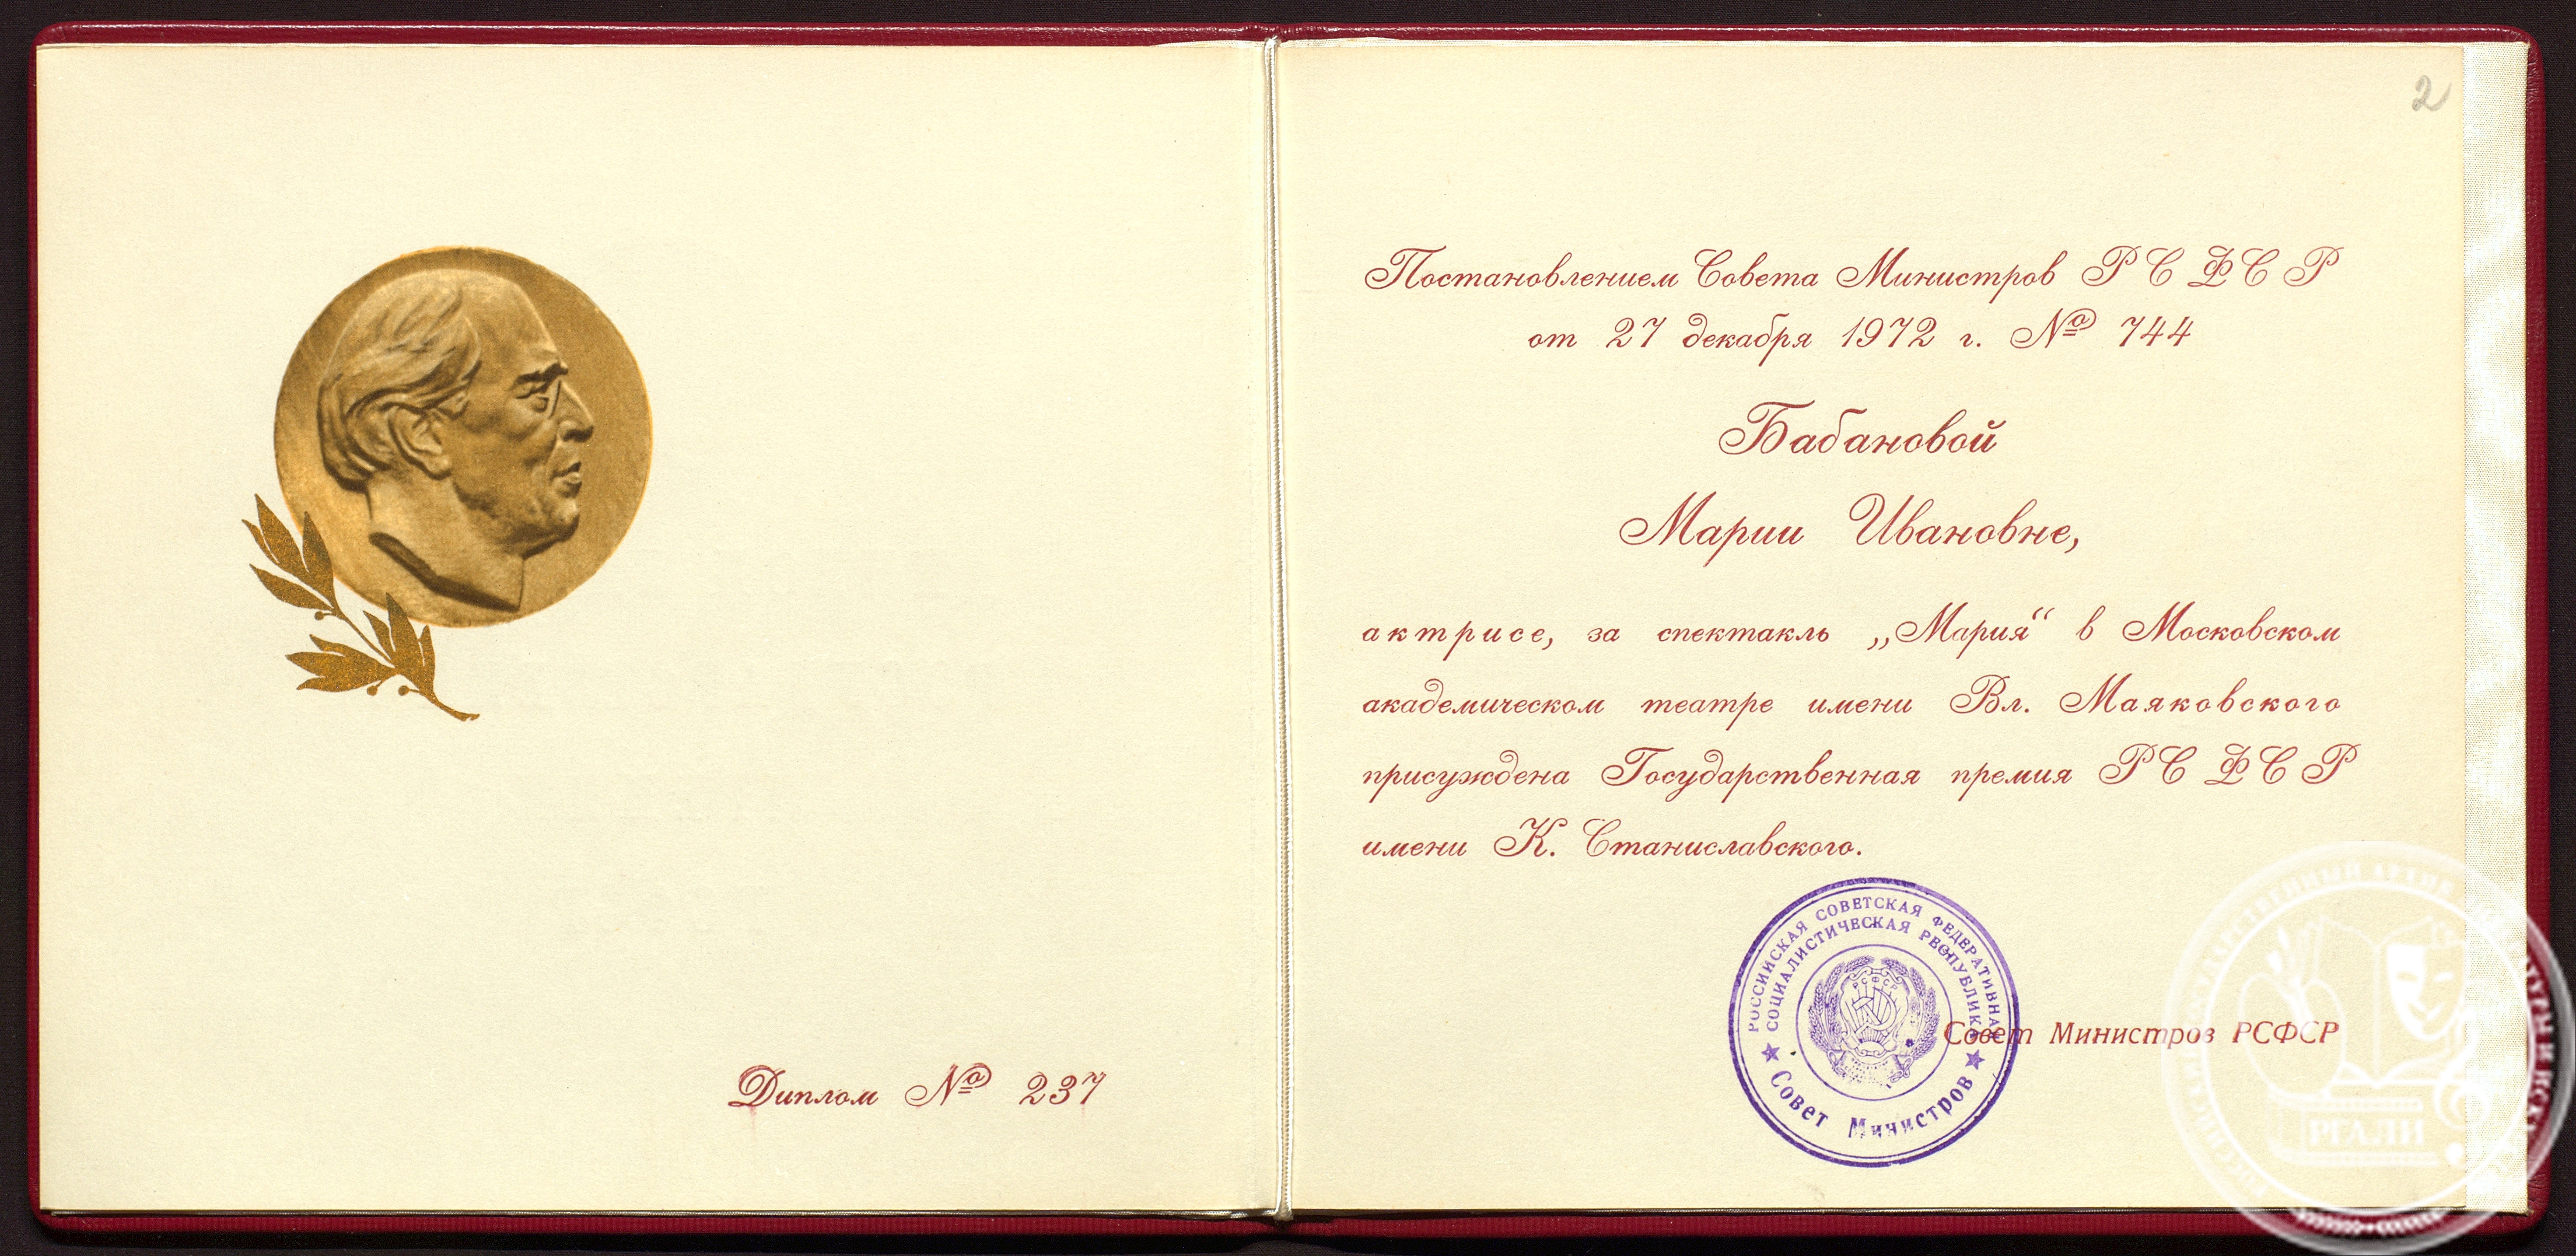 Диплом № 237
2
Постановлением Совета Министров РСФСР
от 27 декабря 1972 г. № 744
Бабановой
Марии Ивановне,
актрисе, за спектакль „Мария“ в Московском
академическом театре имени Вл. Маяковского
присуждена Государственная премия РСФСР
имени К. Станиславского.
РОССИЙСКАЯ СОВЕТСКАЯ ФЕДЕРАТИВНАЯ
СОЦИАЛИСТИЧЕСКАЯ РЕСПУБЛИКА
РСФСР
Совет Министров
Совет Министров РСФСР
РГАЛИ